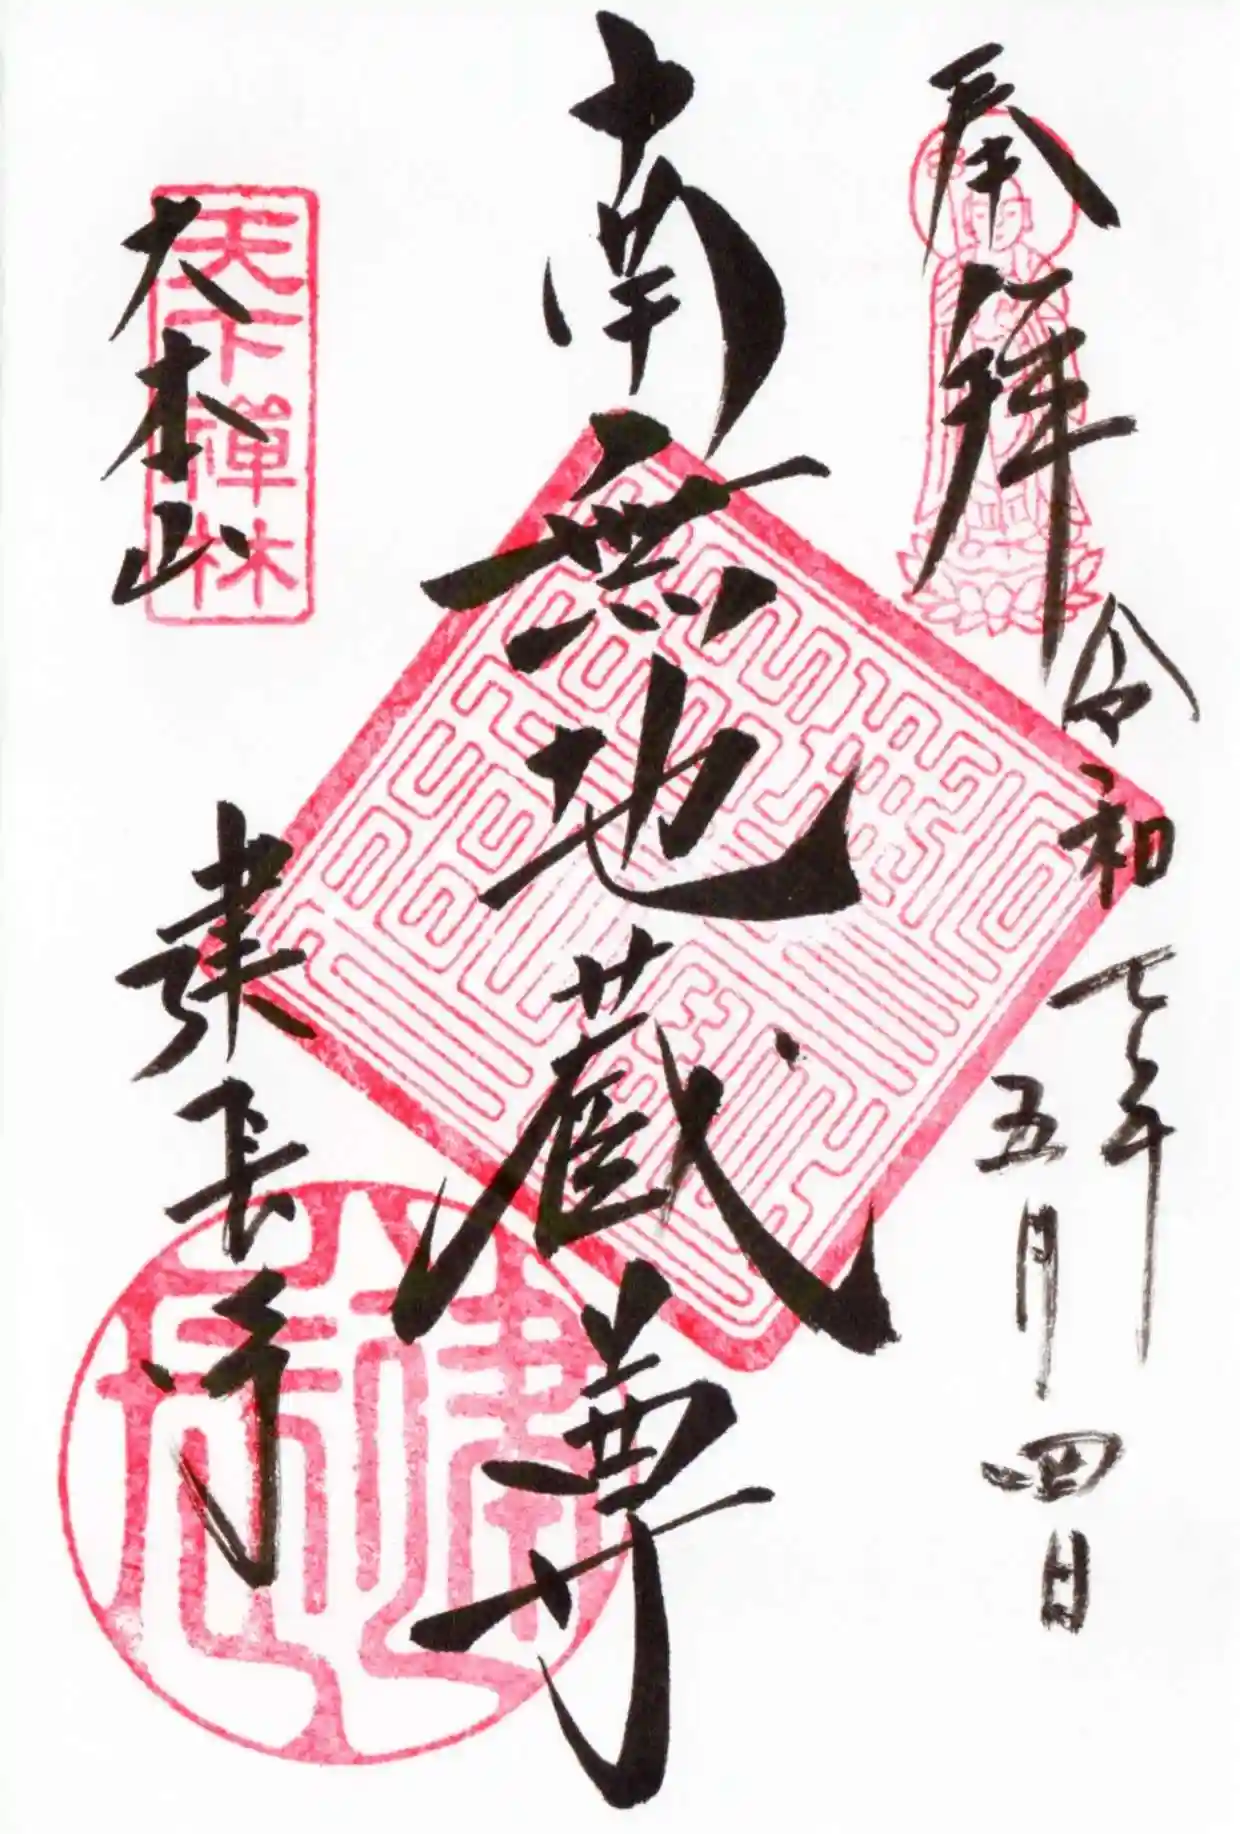 奉拝
令和七年
五月四日
南無地蔵尊
大本山
建長寺
天下禅林